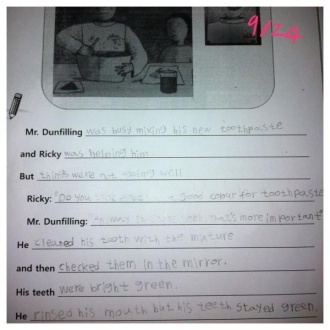 9/24
Mr. Dunfilling was busy mixing his new toothpaste
and Ricky was helping him
But things were not going well
Ricky: "Do you a good colour for toothpaste
Mr. Dunfilling: that's more important"
He cleaned his tooth with the mixture
and then checked them in the mirror.
His teeth were bright green.
He rinsed his mouth but his teeth stayed green.